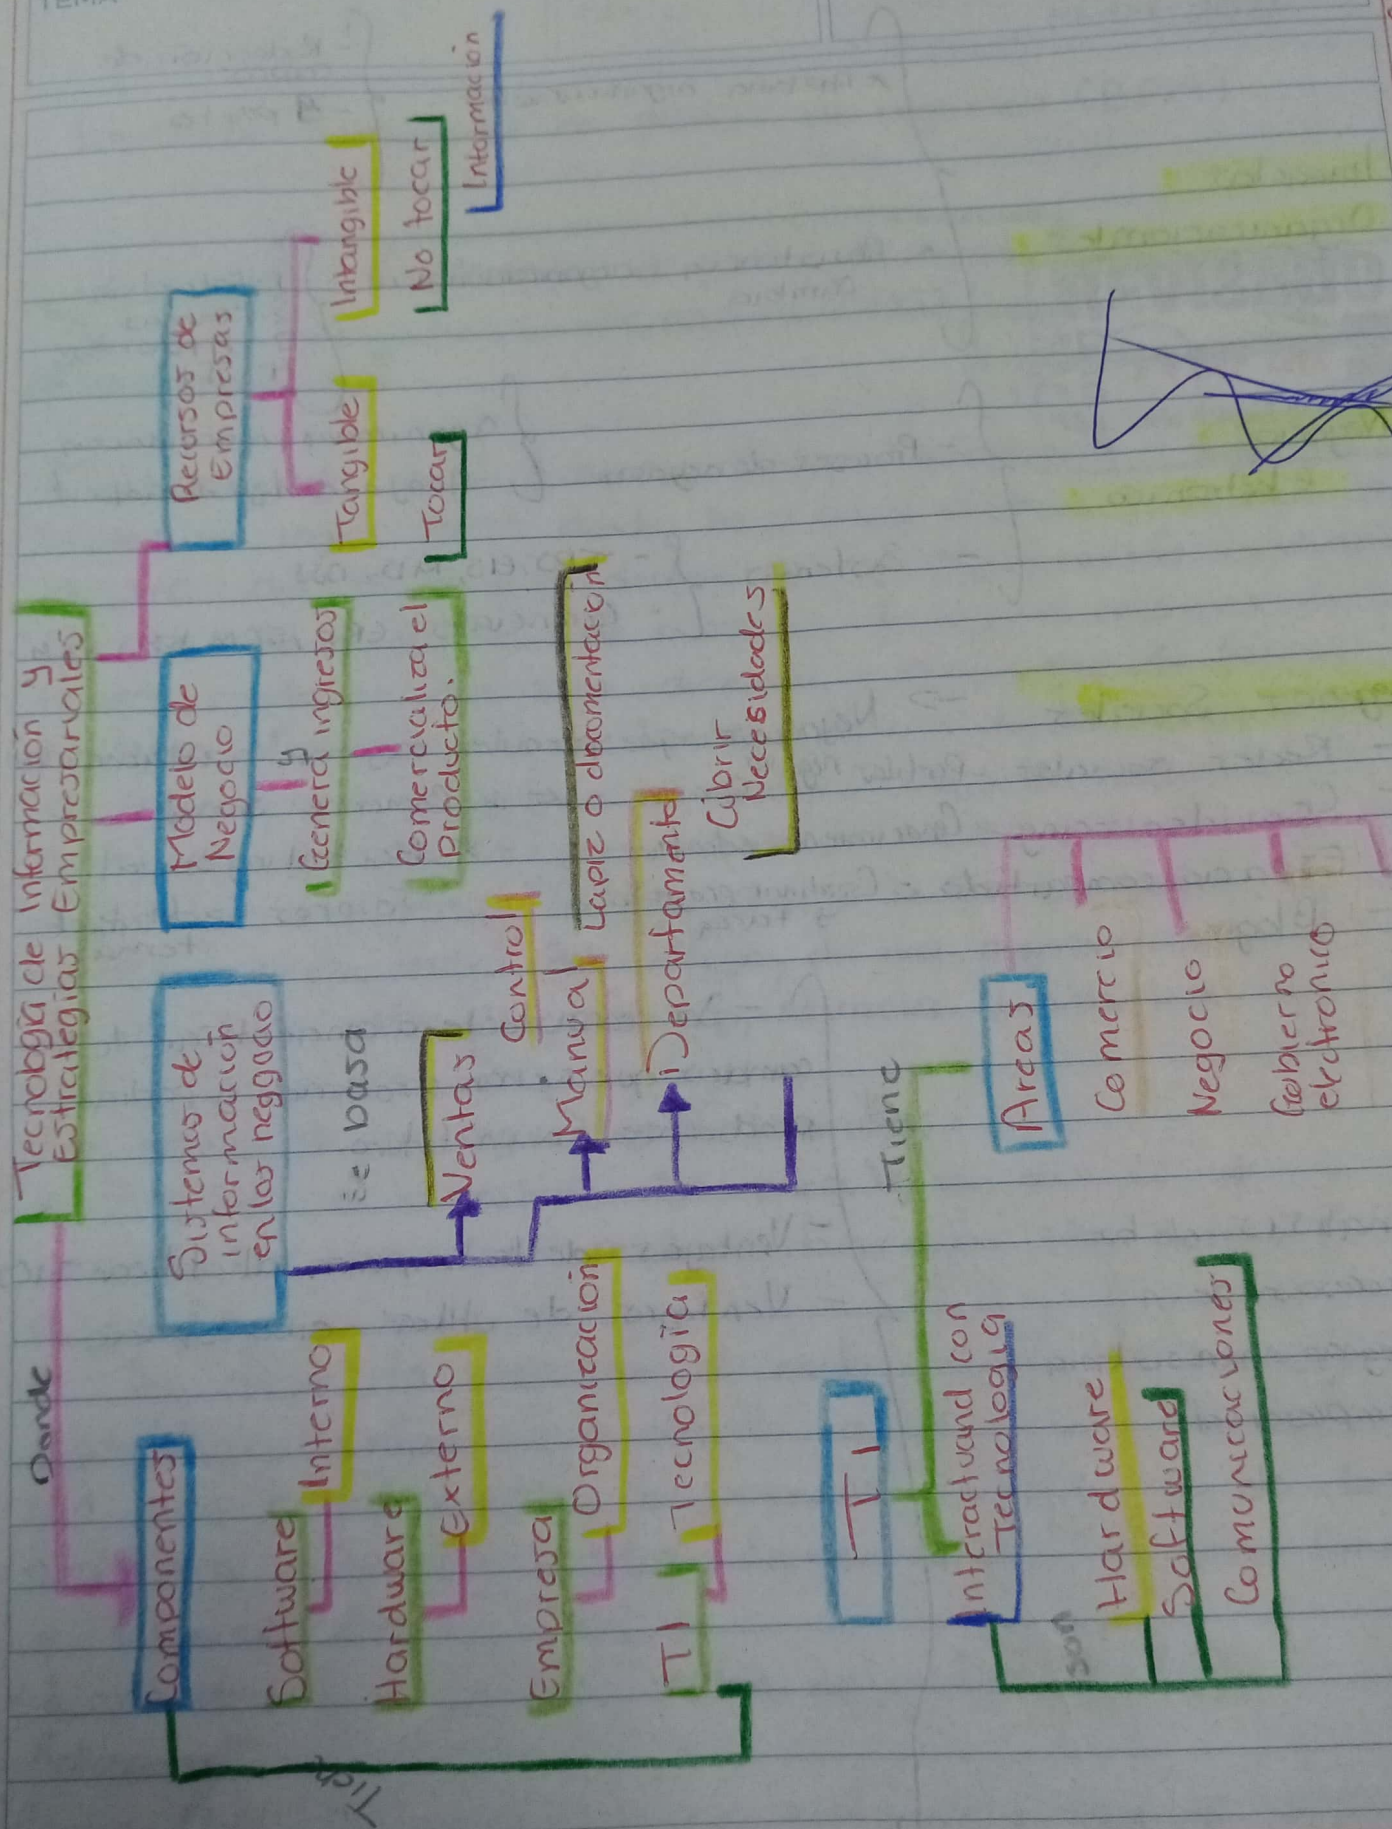 TEMA
Tecnología de Información y
Estrategias Empresariales
Donde
Componentes
Software
Interno
Hardware
Externo
Empresa
Organización
TI
Tecnología
Sistemas de
información
en los negocio
se basa
Ventas
Control
Manual
Lapiz o documentación
Departamento
Cubrir
Necesidades
Modelo de
Negocio
y
Genera ingresos
Comercializa el
producto.
Recursos de
Empresas
Tangible
Tocar
Intangible
No tocar
Información
TI
Tiene
Interactuand con
Tecnologia
son
Hardware
Softward
Comunicaciones
Areas
Comercio
Negocio
Gobierno
electronico